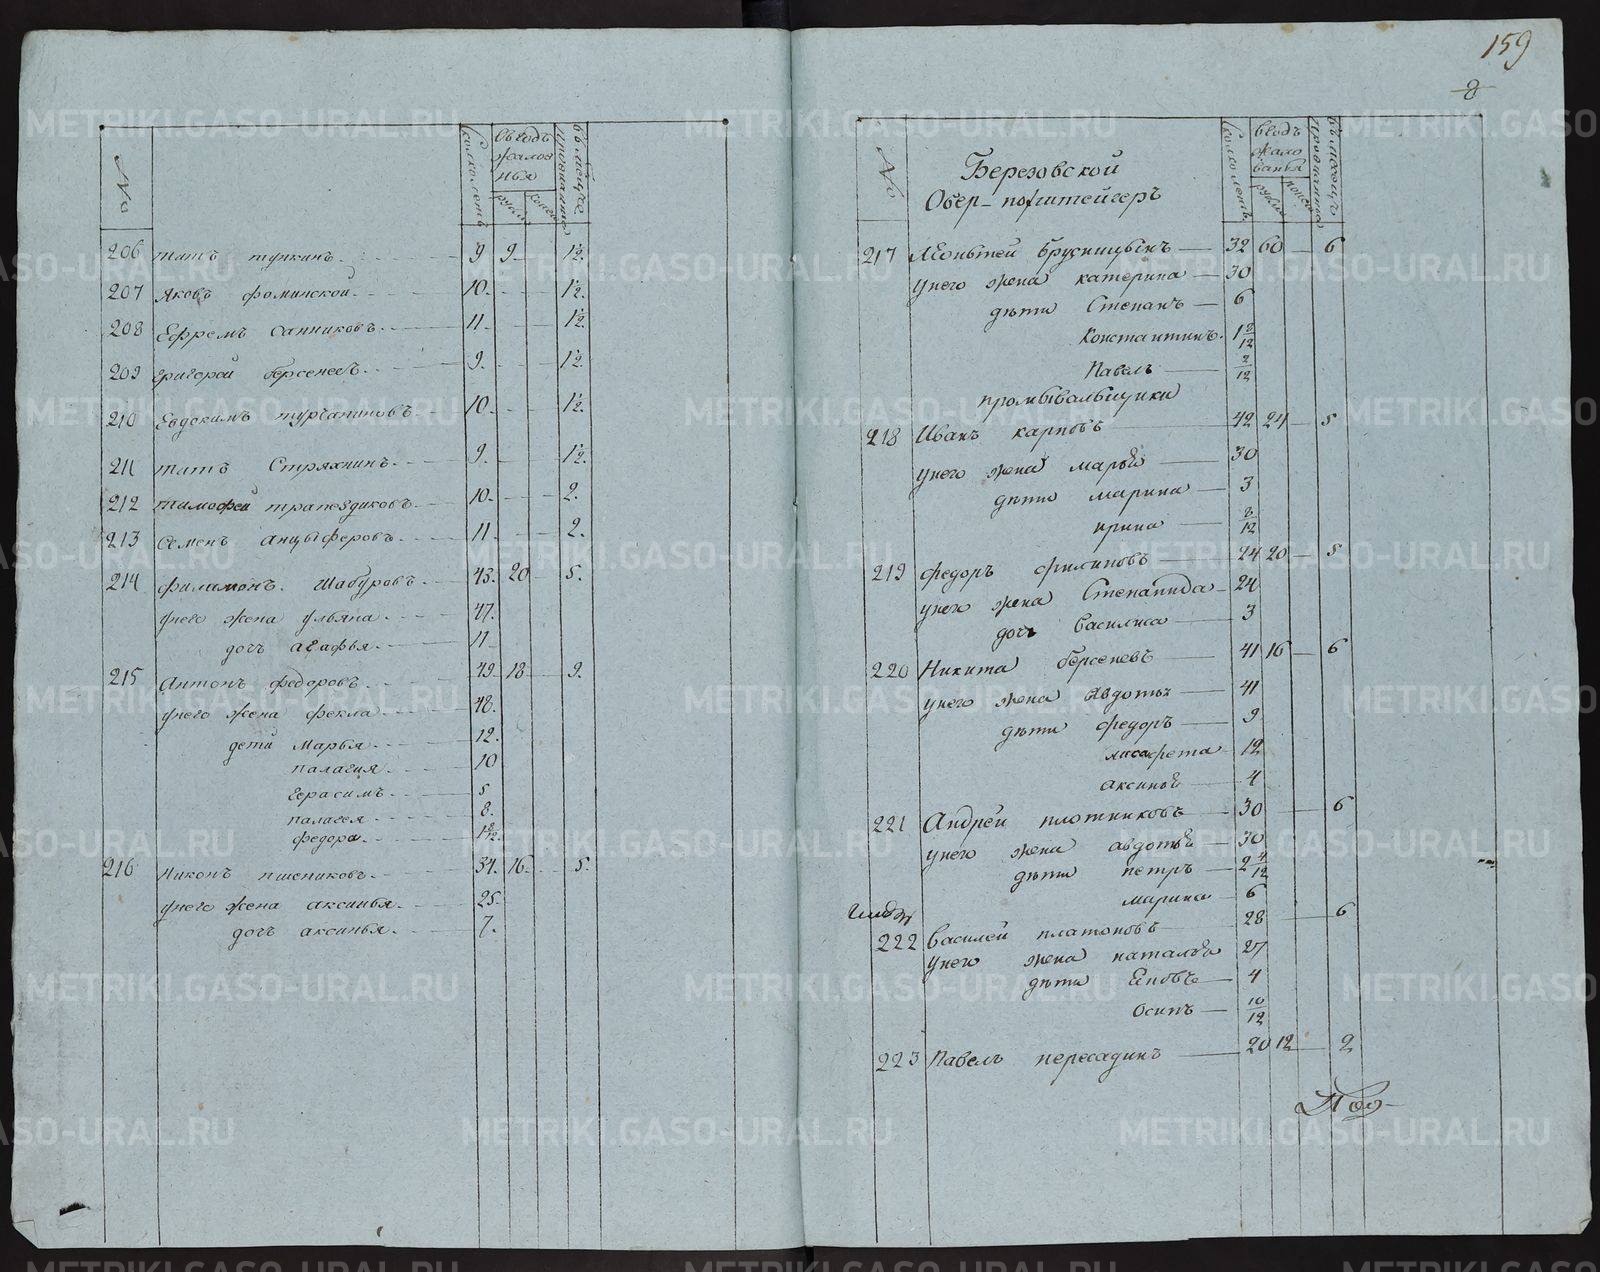 № Сколко летъ Въ годъ жалованья рубли копейки въ месецъ провианта
206 Титъ тупкинъ 9 9 1½
207 Яковъ фоминской 10 1½
208 Ефремъ Санниковъ 11 1½
209 Григорей берсеневъ 9 1½
210 Евдокимъ турчаниновъ 10 1½
211 титъ Стряхнинъ 9 1½
212 тимофей трапездиковъ 10 2
213 Семенъ анцыферовъ 11 2
214 филимонъ Шабуровъ 43 20 5
унего жена ульяна 47
дочь агафья 11
215 Антонъ федоровъ 49 18 9
унего жена фекла 48
дети Марья 12
палагия 10
Герасимъ 5
палагея 8
федора
216 Никонъ пшениковъ 34 16 5
унего жена аксинья 25
дочь аксинья 7
159
8
№ Сколко летъ Вгодъ жалованья рубли
Березовской
217 Брусницынъ 32 60 6
унего жена катерина 30
дѣти Степанъ 6
Константинъ 1 8/12
Павелъ 2/12
промывальщики
218 Иванъ карповъ 42 24 5
унего жена марья 30
дѣти марина 3
ирина 8/12
219 федоръ филиповъ 24 20 5
унего жена Степанида 24
дочь Василиса 3
220 Никита берсеневъ 41 16 6
унего жена авдотья 41
дѣти федоръ 9
12
аксинья 4
221 Андрей плотниковъ 30 6
унего жена авдотья 30
дѣти петръ 2 4/12
марина 6
222 Василей платоновъ 28 6
унего жена наталья 27
дѣти 4
Осипъ 10/12
223 Павелъ пересадинъ 20 12 2